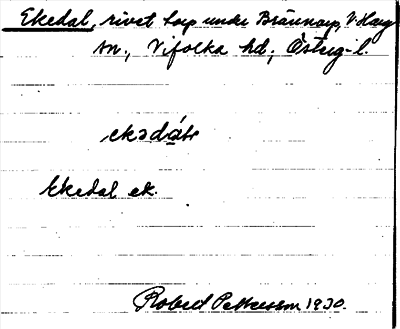 Ekedal, rivet torp under Brännorp, V. Harg
sn., Vifolka hd, Österg-l.
ekədɑ́ꞎ
Ekedal ek.
Robert Pettersson 1930.